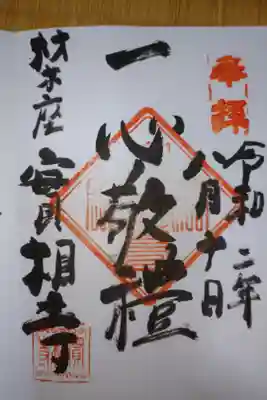 奉拝
令和二年
八月十日
一心敬禮
材木座
實相寺